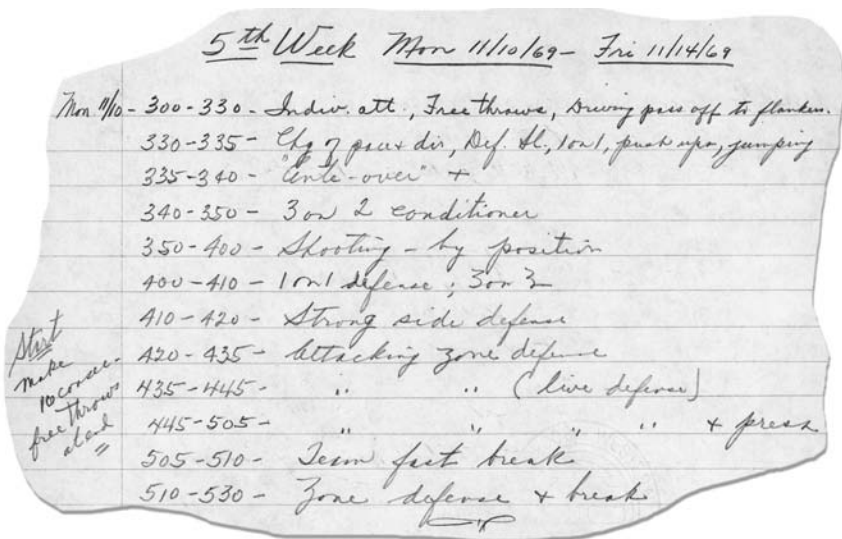 5th Week Mon 11/10/69 – Fri 11/14/69
Mon 11/10 - 300-330 - Indiv. att., Free throws, Driving pass off to flankers.
330-335 - Chg of pace & dir, Def. sl., 1on1, push ups, jumping
335-340 - "Ante-over" +
340-350 - 3 on 2 conditioner
350-400 - Shooting - by position
400-410 - 1on1 defense; 3 on 3
410-420 - Strong side defense
420-435 - Attacking zone defense
435-445 - " " (live defense)
445-505 - " " " " + press
505-510 - Team fast break
510-530 - Zone defense + break
Start
make
10 consec.
free throws
at end